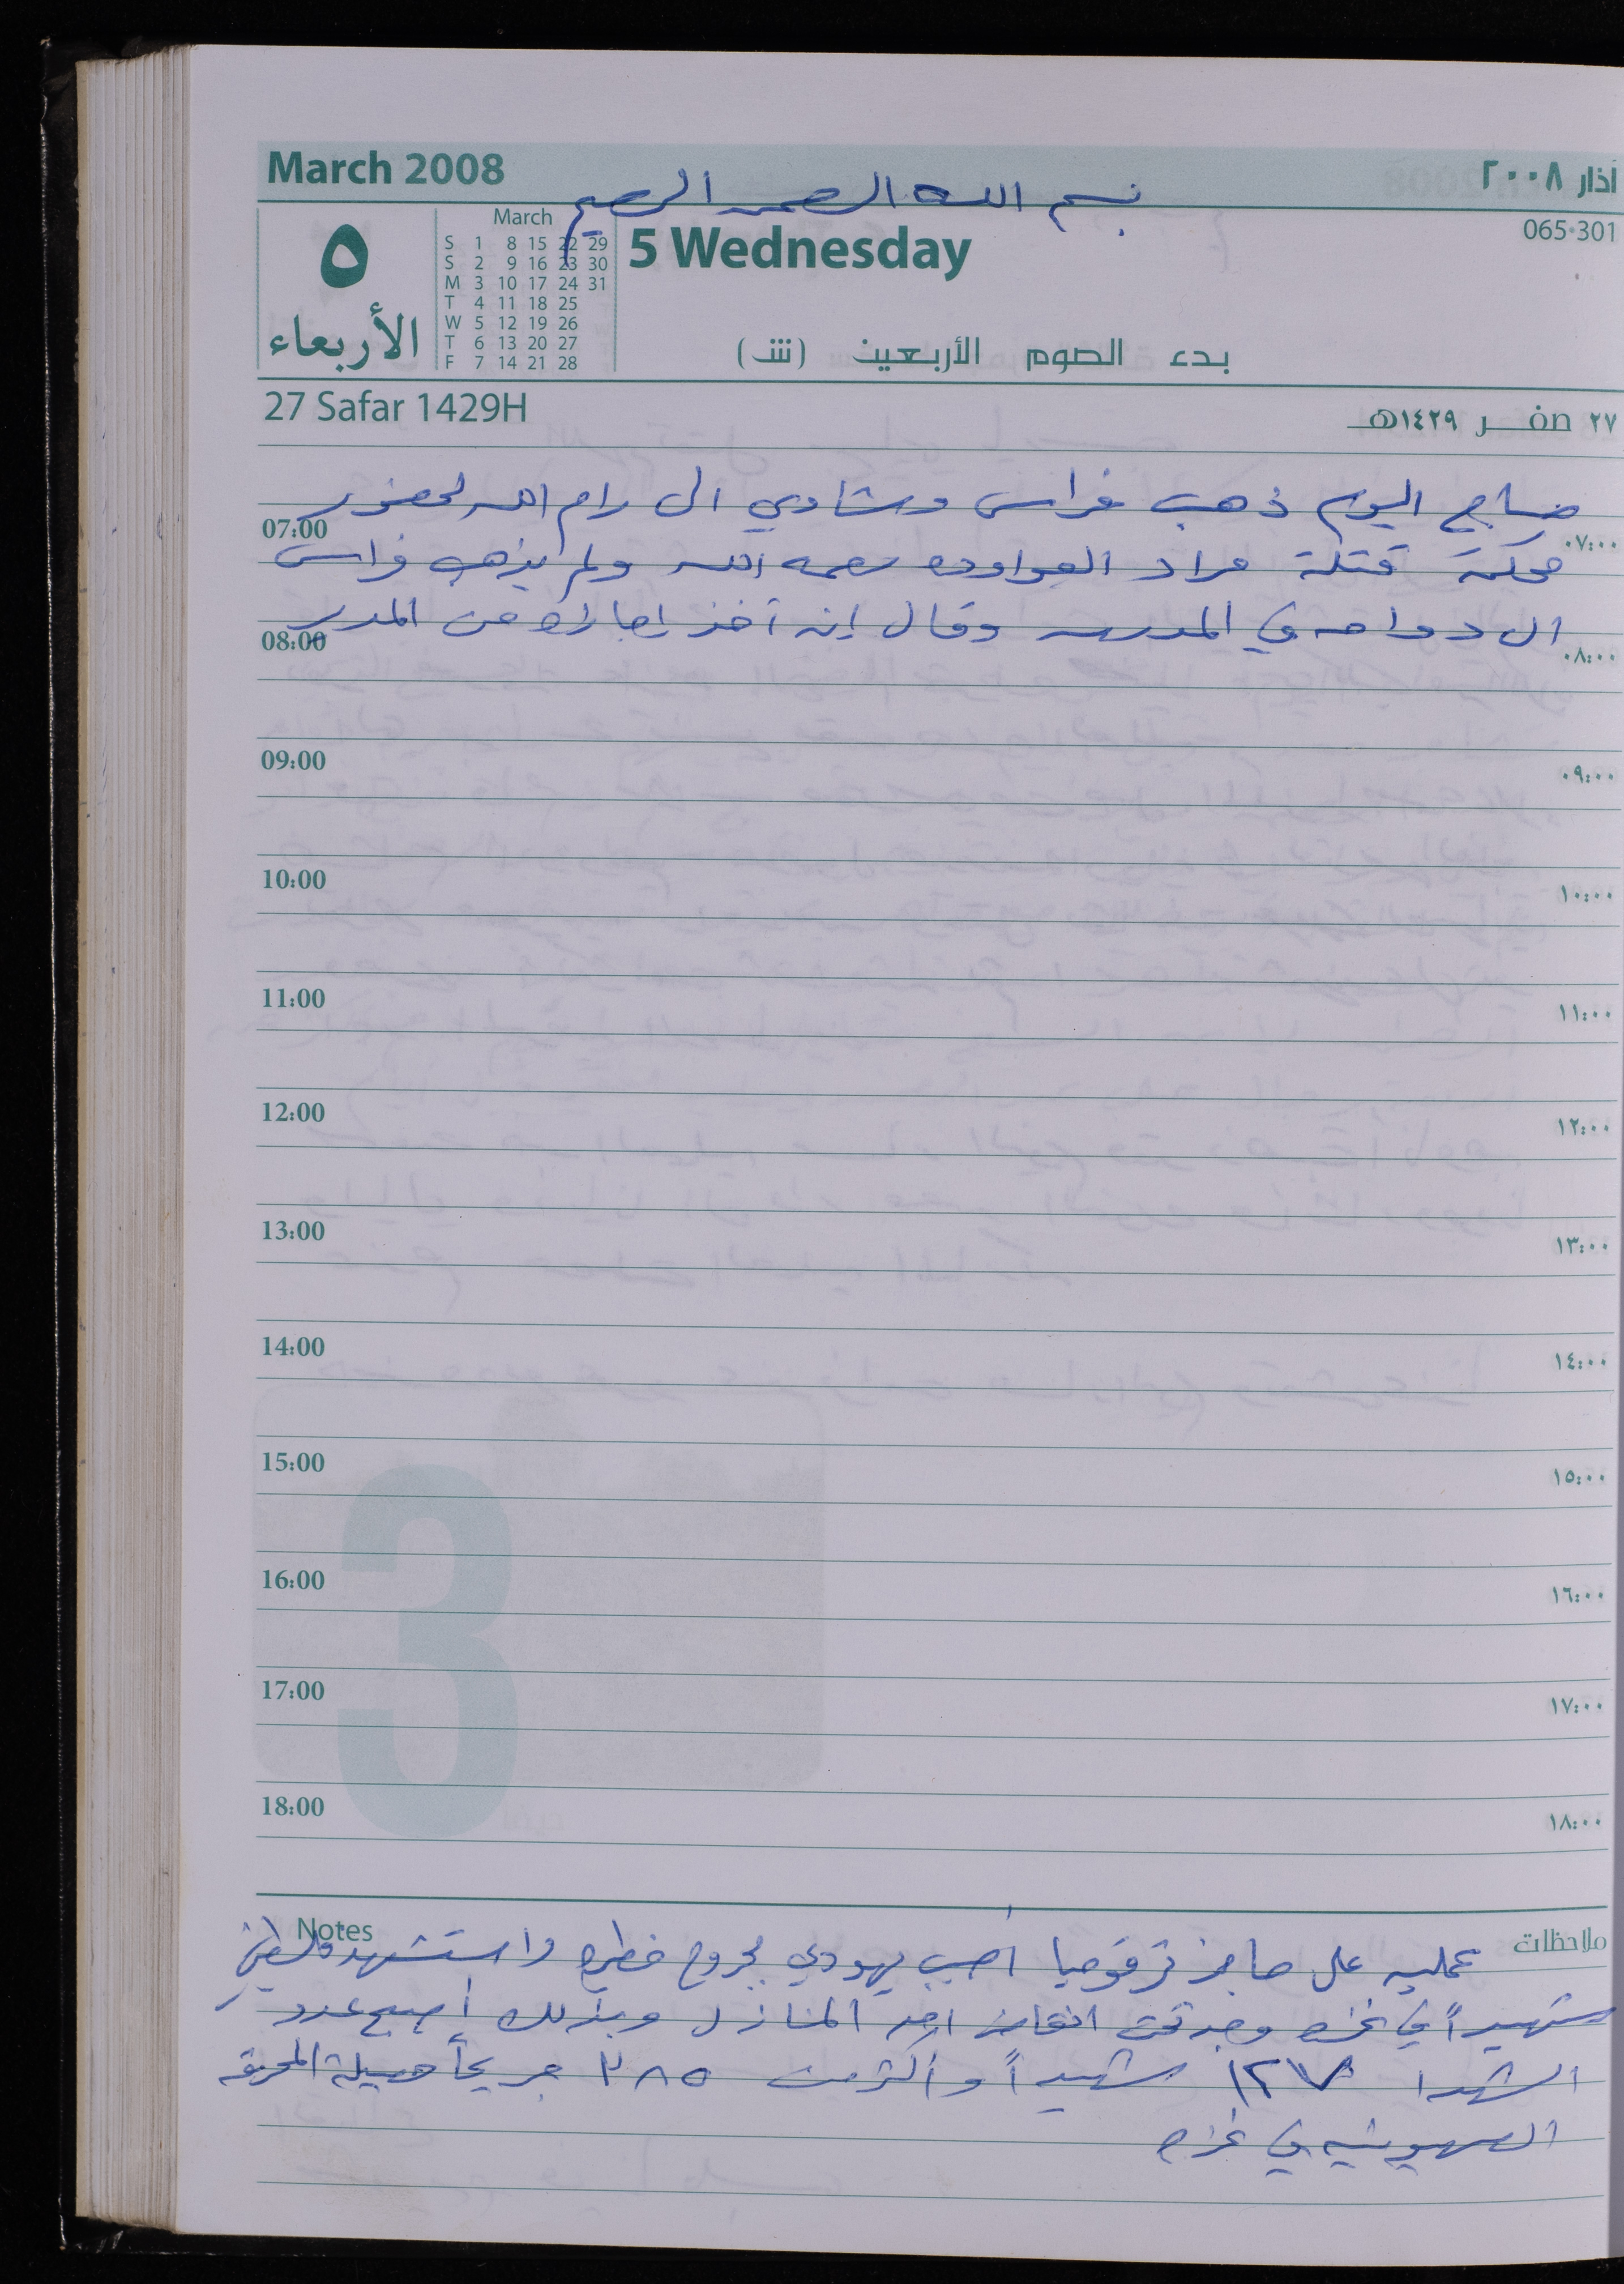 March 2008
آذار ٢٠٠٨
بسم الله الرحمن الرحيم
٥
الأربعاء
March
S 1 8 15 22 29
S 2 9 16 23 30
M 3 10 17 24 31
T 4 11 18 25
W 5 12 19 26
T 6 13 20 27
F 7 14 21 28
5 Wednesday
065-301
بدء الصوم الأربعين (ش)
27 Safar 1429H
٢٧ صفر ١٤٢٩هـ
صباح اليوم ذهب فراس وشادي الى رام الله لحضور
07:00 ٠٧:٠٠
محكمة قتلة مراد العواوده رحمه الله ولم يذهب فراس
الى دوامه في المدرسه وقال انه أخذ اجازه من المدير
08:00 ٠٨:٠٠
09:00 ٠٩:٠٠
10:00 ١٠:٠٠
11:00 ١١:٠٠
12:00 ١٢:٠٠
13:00 ١٣:٠٠
14:00 ١٤:٠٠
15:00 ١٥:٠٠
16:00 ١٦:٠٠
17:00 ١٧:٠٠
18:00 ١٨:٠٠
3
Notes
ملاحظات
عمليه على حاجز ترقوميا أصيب يهودي بجروح خطيره واستشهد فلسطيني
شهيداً في غزه وجد تحت انقاض احد المنازل وبذلك أصبح عدد
الشهدا ١٢٧ شهيداً وأكثر من ٣٨٥ جريحاً حصيلة المحرقه
الصهيونيه في غزه